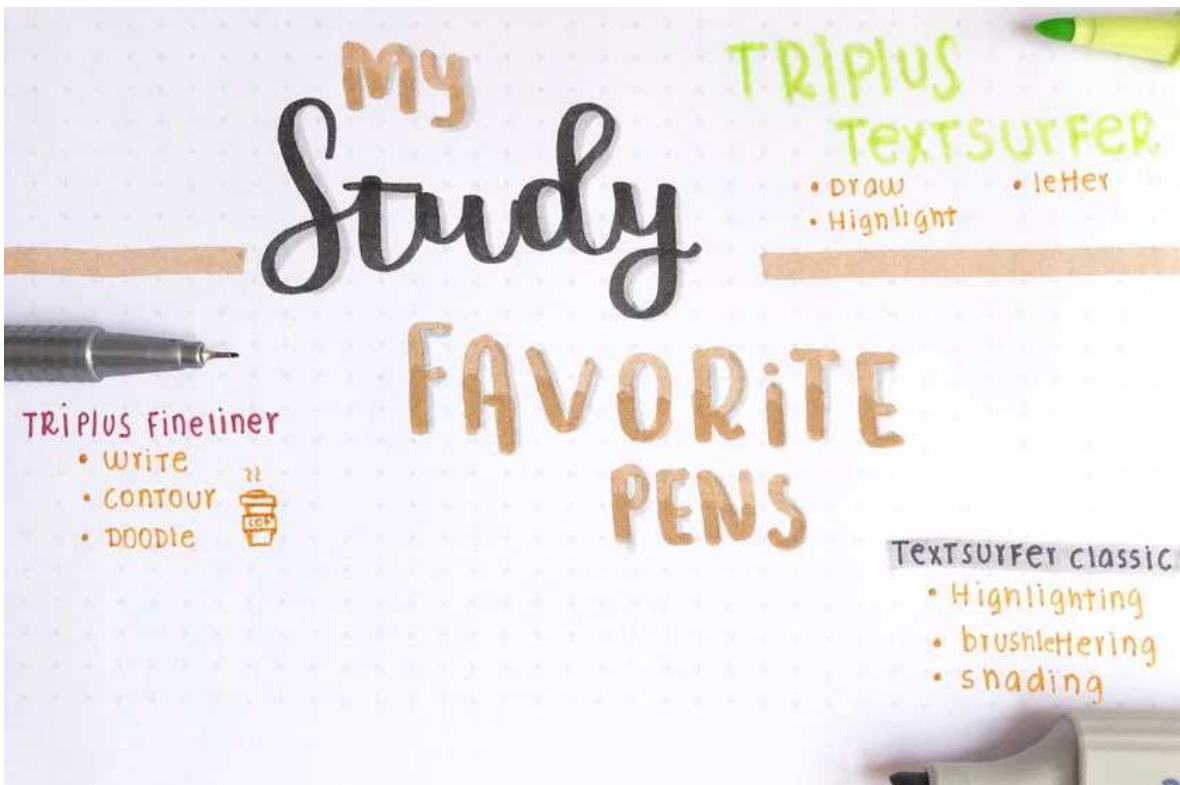 My
Study
FAVORiTE
PENS
TRiPlUS
TexTSUrFeR
• Draw
• letter
• Highlight
TRiPlUS Fineliner
• WriTe
• CONTOUr
• DOODle
COF
TexTSUrFer Classic
• Highlighting
• brushlettering
• shading